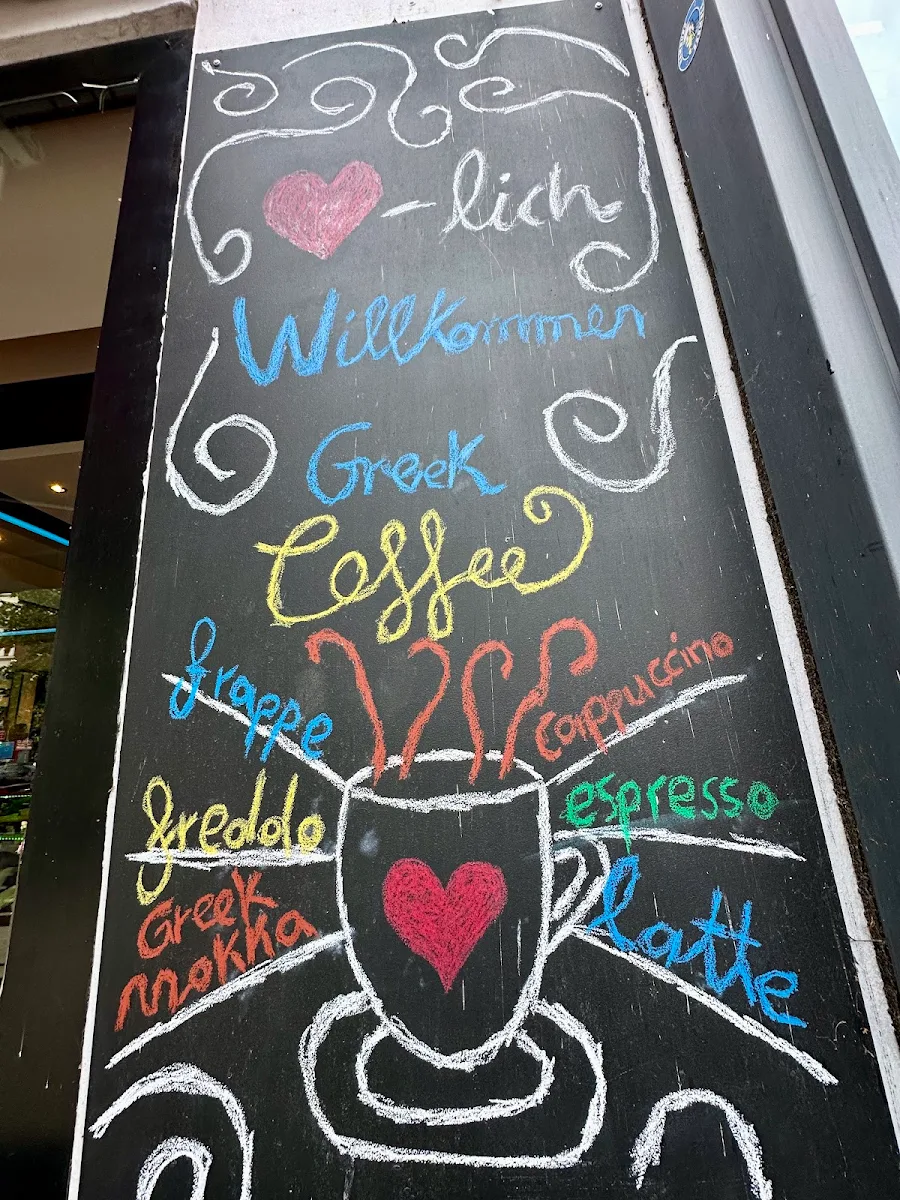 -lich
Willkommen
Greek
Coffee
frappe
cappuccino
freddo
espresso
Greek
mokka
latte